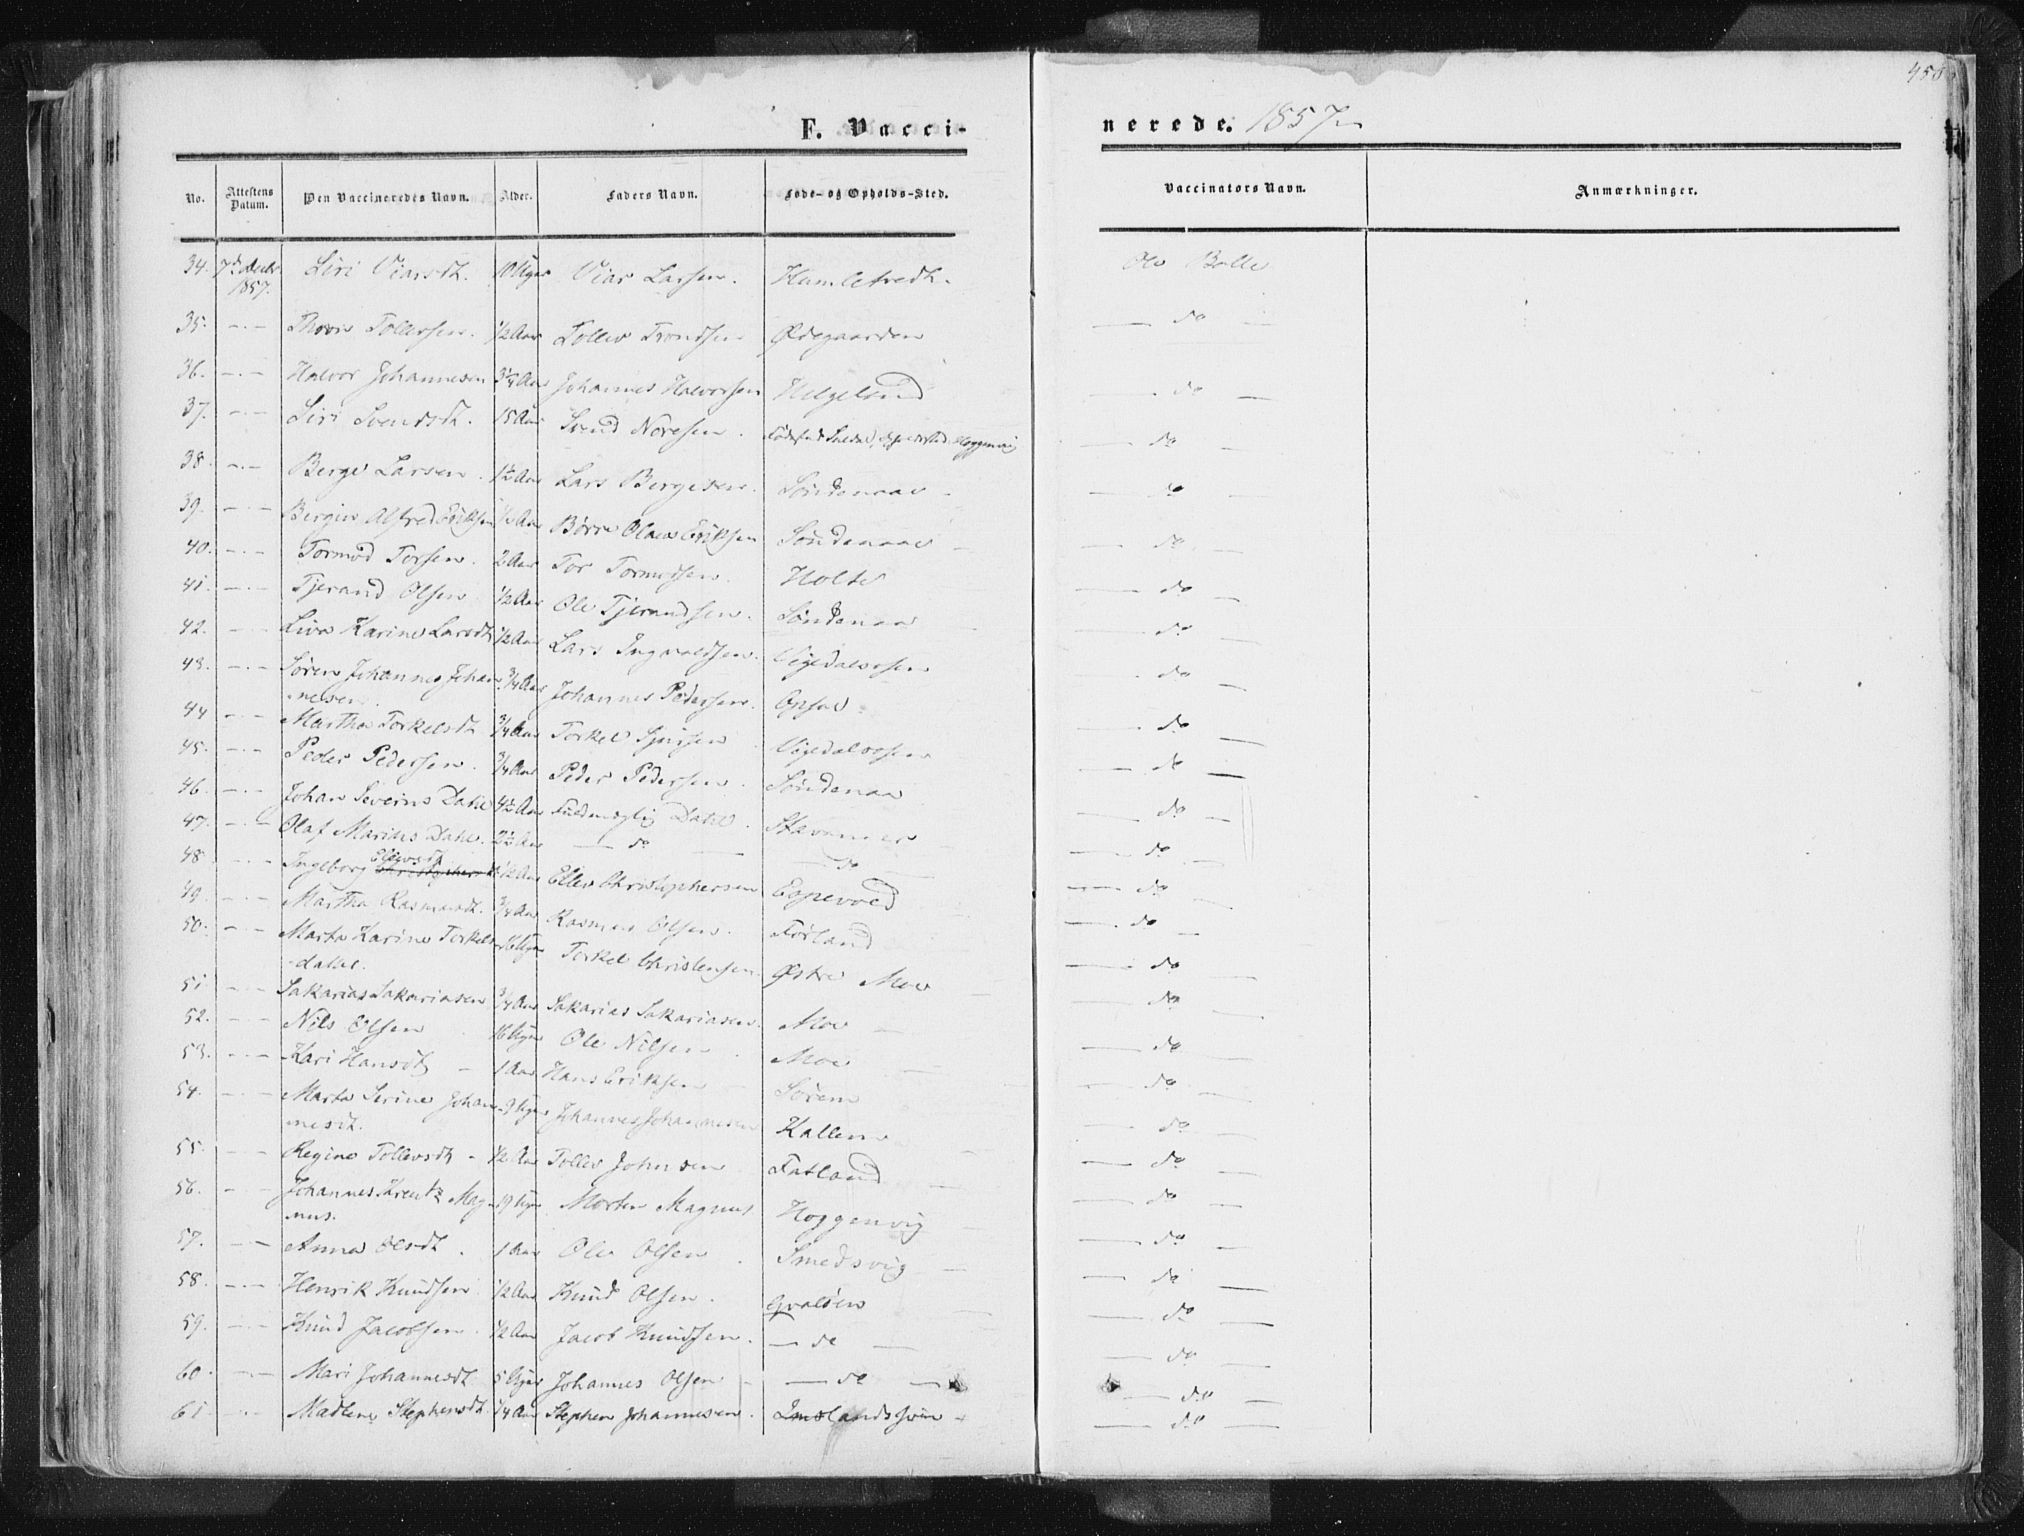 450
F. Vacci-
nerede. 1857
No.
Attestens Datum.
Den Vaccineredes Navn.
Alder.
Faders Navn.
Føde- og Opholds-Sted.
Vaccinators Navn.
Anmærkninger.
34. 7de Decbr 1857. Siri Viarsdt. 10 Uger Viar Larsen. Humletvedt. Ole Balle
35. -.- Tollefsen. 1/2 Aar Tollev Trondsen Ødegaarden — do —
36. -.- Halvor Johannesen 3 1/4 Aar Johannes Halvorsen Helgeland — do —
37. -.- Siri Svendsdt. 15 Aar Svend Noresen. Fødested Suldal, Opholdsted Hoggenvig — do —
38. -.- Berge Larsen. 1 1/2 Aar Lars Bergesen. Søndenaae — do —
39. -.- Alfred Eriksen 1/2 Aar Børre Olaus Eriksen Søndenaae — do —
40. -.- Tormod Torsen. 2 Aar Tor Tormodsen. Holte — do —
41. -.- Tjerand Olsen 1/2 Aar Ole Tjerandsen. Søndenaa — do —
42. -.- Karine Larsdt 1/2 Aar Lars Ingvaldsen. Vigedalsosen — do —
43. -.- Søren Johannes Johan-
nesen. 3/4 Aar Johannes Pedersen. Opsal — do —
44 -.- Martha Torkelsdt 3/4 Aar Torkel Vigedalsosen — do —
45. -.- Peder Pedersen. 3/4 Aar Peder Pedersen. Søndenaa — do —
46. -.- Johan Severin Dahl 4 1/2 Aar Fuldmægtig Dahl. Stavanger — do —
47. -.- Olaf Marius Dahl. 2 1/2 Aar — do — — do — — do —
48 -.- Ingeborg Ellevsdt 1/2 Aar Ellev Christophersen — do —
49. -.- Martha Rasmusdt. 3/4 Aar Rasmus Olsen. Førland — do —
50. -.- Marta Karine Torkels-
datter. 16 Uger Torkel Christensen. Østre Moe — do —
51. -.- Sakarias Sakariasen 3/4 Aar Sakarias Sakariasen. Moe — do —
52. -.- Nils Olsen 16 Uger Ole Nilsen Moe — do —
53. -.- Kari Hansdt 1 Aar Hans Eriksen Sørem — do —
54. -.- Marta Serine Johan-
nesdt. 9 Uger Johannes Johannesen Kallem — do —
55. -.- Regine Tollevsdt 1/2 Aar Tollev Johnsen Fatland — do —
56. -.- Johannes Kreutz Mag-
nus. 19 Uger Morten Magnus Hoggenvig — do —
57. -.- Anna Olsdt. 1 Aar Ole Olsen Smedsvig — do —
58. -.- Henrik Knudsen 1/2 Aar Knud Olsen. Qvaløen — do —
59. -.- Knud Jacobsen. 1/2 Aar Jacob Knudsen. — do — — do —
60. -.- Mari Johannesdt 5 Uger Johannes Olsen — do — — do —
61. -.- Madlene Stephensdt. 1/4 Aar Stephen Johannesen. Imslandssøen — do —